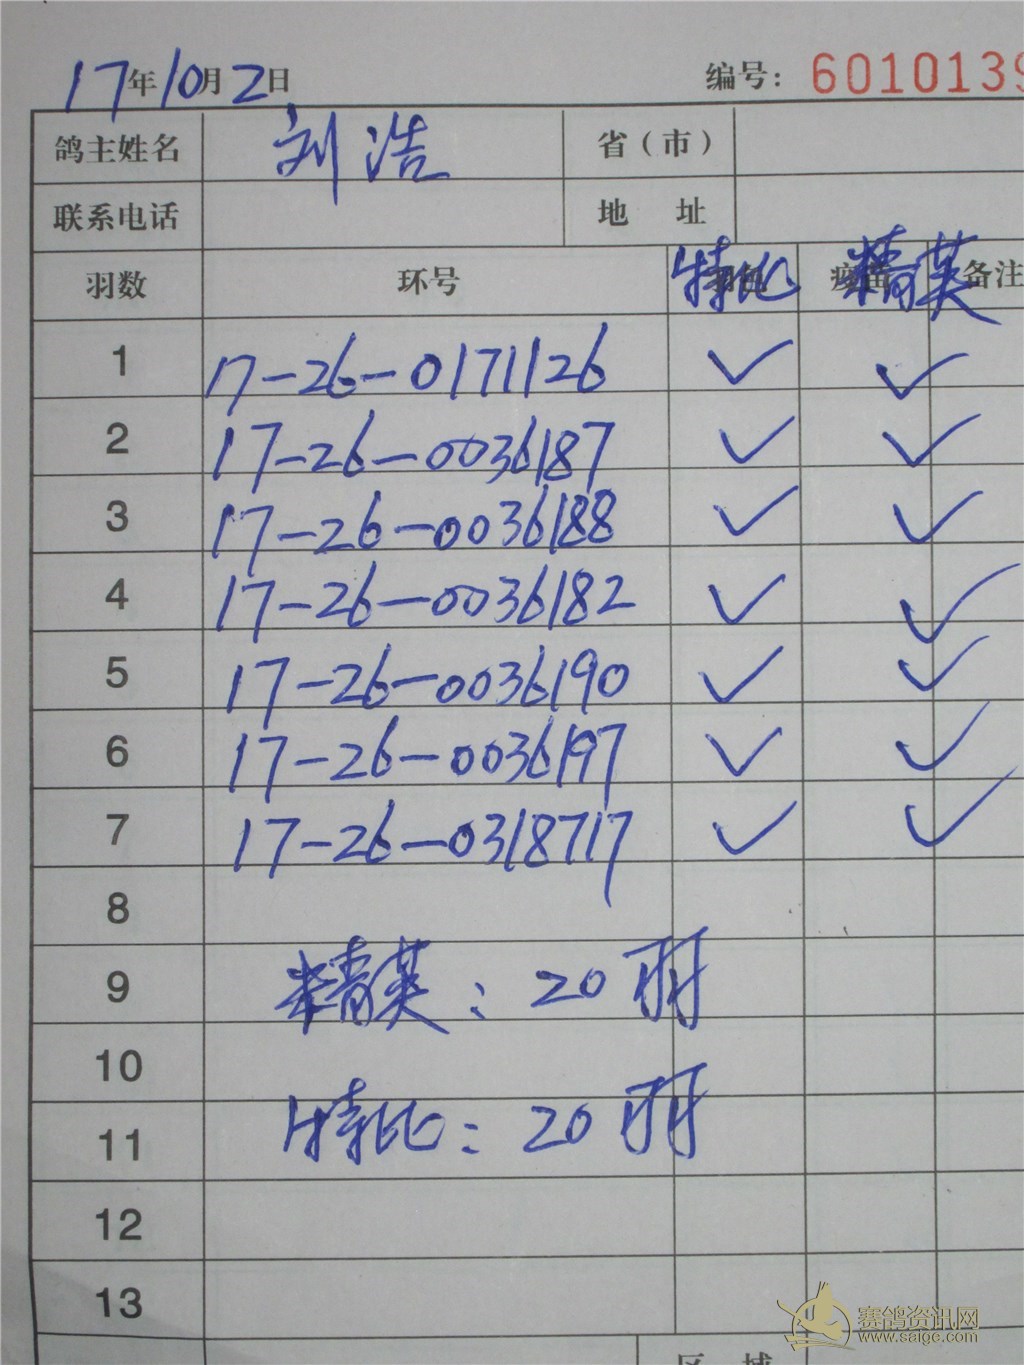 17年10月2日 编号: 6010139
鸽主姓名 刘浩 省(市)
联系电话 地 址
羽数 环号 特比 精英 备注
1 17-26-0171126 ✓ ✓
2 17-26-0036187 ✓ ✓
3 17-26-0036188 ✓ ✓
4 17-26-0036182 ✓ ✓
5 17-26-0036190 ✓ ✓
6 17-26-0036197 ✓ ✓
7 17-26-0318717 ✓ ✓
8
9 精英: 20羽
10
11 特比: 20羽
12
13
区 域
赛鸽资讯网
www.saige.com